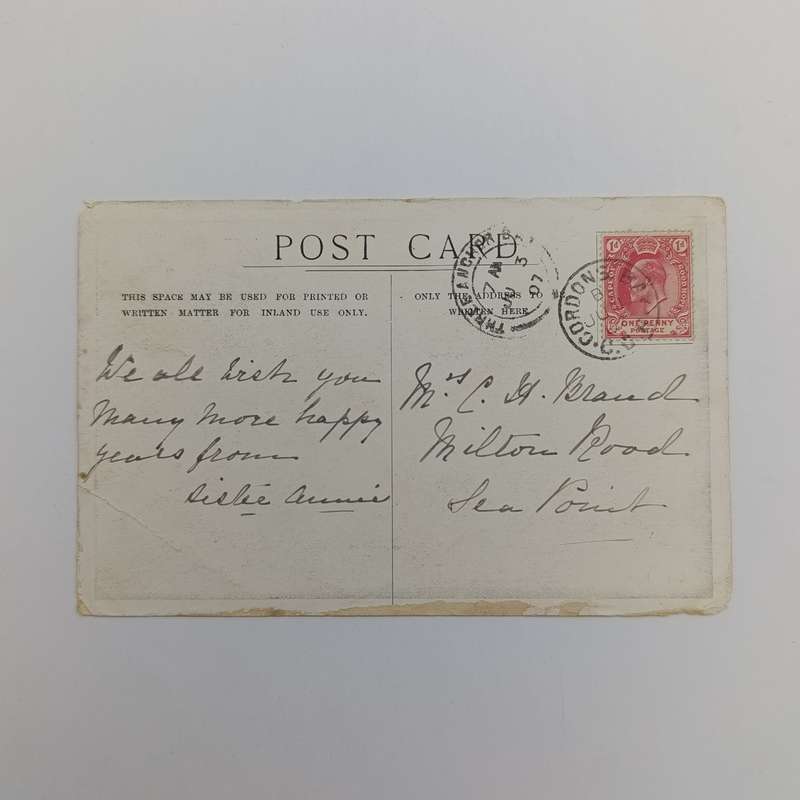 POST CARD
THIS SPACE MAY BE USED FOR PRINTED OR
WRITTEN MATTER FOR INLAND USE ONLY.
ONLY THE ADDRESS TO
WRITTEN HERE
We all wish you
many more happy
years from
Sistie Annie
Mrs C. H. Brand
Milton Road
Sea Point
THREE ANCHOR BAY
7 AM
JU 3
07
GORDONS BAY
JU
1d 1d
CAPE OF GOOD HOPE
ONE PENNY
POSTAGE